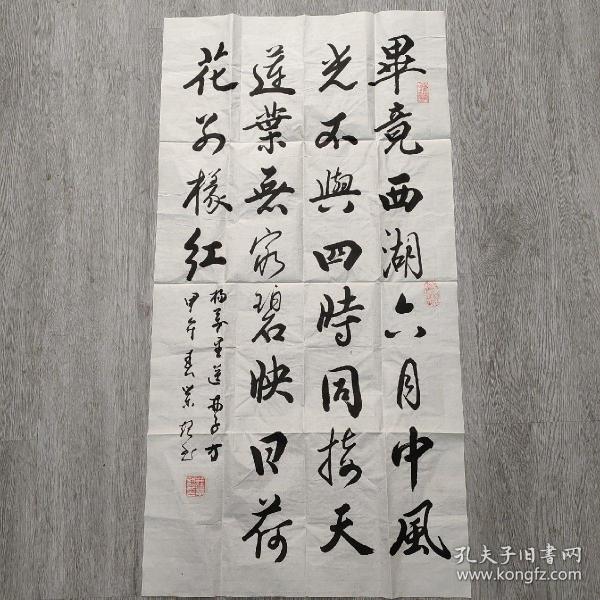 畢竟西湖六月中風
光不與四時同接天
蓮葉無窮碧映日荷
花別樣紅
楊萬里送
甲午春
孔夫子旧书网
www.kongfz.com